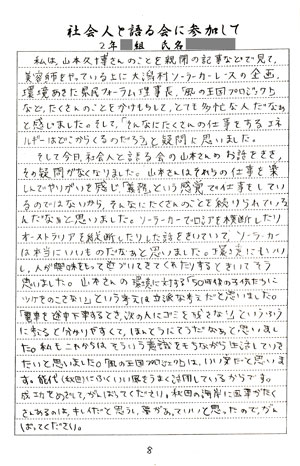 社会人と語る会に参加して
2年 組 氏名
私は、山本久博さんのことを新聞の記事などで見て、
美容師をやっている上に大潟村ソーラーカーレースの企画、
環境あきた県民フォーラム理事長、「風の王国プロジェクト」
など、たくさんのことをかけもちして、とても多忙な人だなぁ
と感じました。そして、「そんなにたくさんの仕事をするエネ
ルギーはどこからくるのだろう。」と疑問に思いました。
そして今日、社会人と語る会の山本さんのお話をきき、
その疑問がなくなりました。山本さんはそれらの仕事を楽
しんでやりがいを感じ「義務」という感覚で仕事をしてい
るのではないから、そんなにたくさんのことを続けられている
んだなぁと思いました。ソーラーカーでロシアを横断したり
オーストラリアを縦断したりした話をきいていて、ソーラーカー
は本当にいいものだなぁと思いました。環境にもいい
し、人が興味をもって近づいてきてくれたりするときいてそう
思いました。山本さんの環境に対する「50年後の子供たちに
ツケをのこさない」という考えは立派な考えだと思いました。
「電車を途中下車するとき、次の人にゴミを残さない」というふう
に考ると分かりやすくて、ほんとうにそうだなぁと思いまし
た。私もこれからは、そういう意識をもちながら生活していき
たいと思いました。「風の王国プロジェクト」は、いい案だと思いま
す。能代(秋田)にふくいい風をうまく活用しているからです。
成功をめざして、がんばってください。秋田の海岸に風車がたく
さんあるのは、キレイだと思うし、夢があっていいと思ったので、がん
ばってください。
8